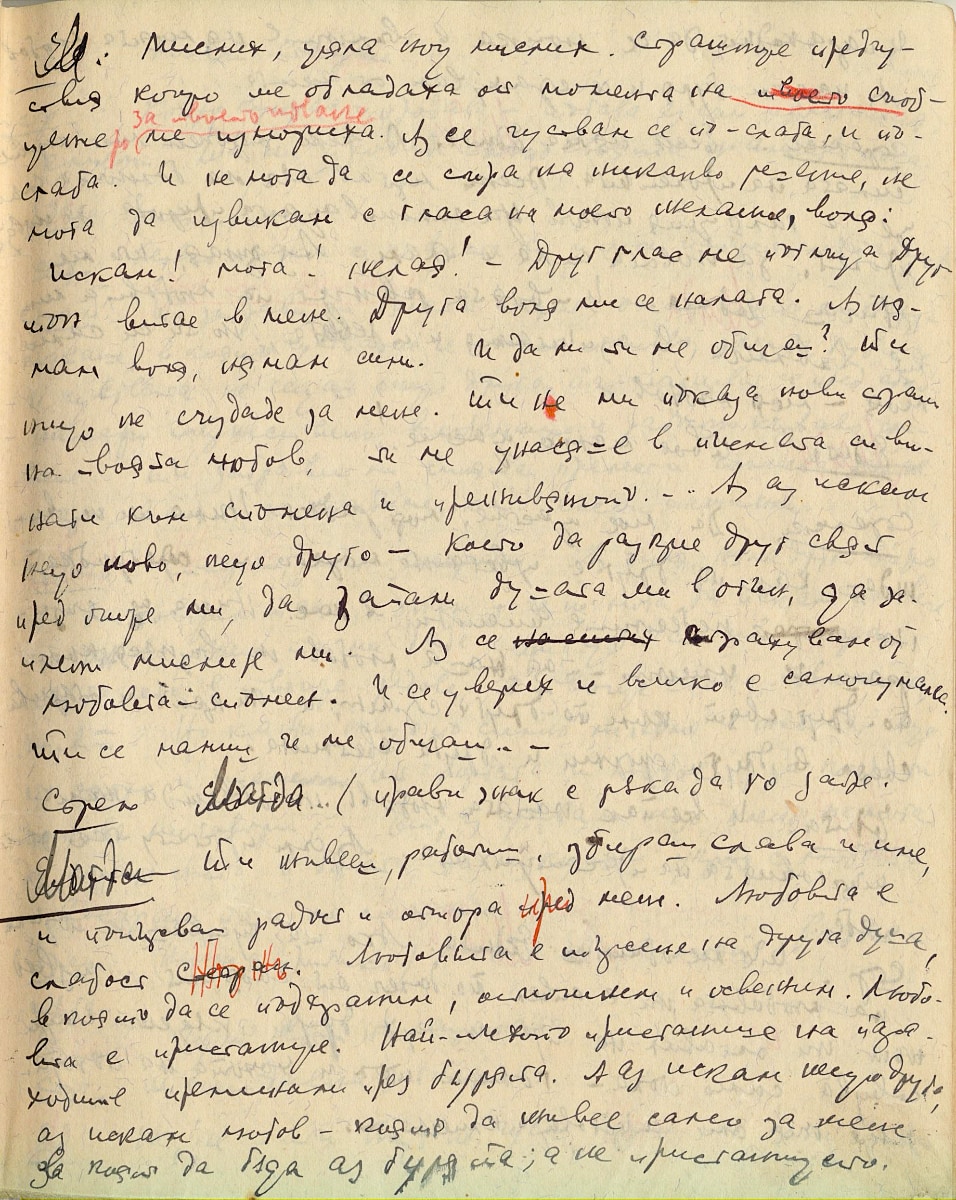 Ел.: Мислих, цяла нощ мислих. Страшните предчу-
ствия които ме обладаха от момента на твоето съоб-
за твоето идване
щение ме измориха. Аз се чуствам се по-слаба, и по-
слаба. И не мога да се спра на никакво решение, не
мога да извикам с гласа на моето желание, воля:
искам! мога! желая! – Друг глас ме подлица Друг
тон витае в мене. Друга воля ми се налага. Аз ня-
мам воля, нямам сили. И дали ти ме обичаш? Ти
нищо не създаде за мене. Ти не ми показа нови страни
на твоята любов, ти ме унасяше в песента си ви-
наги към спомена и преживяното. – . Аз аз искам
нещо ново, нещо друго – което да разкрие друг свят
пред очите ми, да запали душата ми в огън, да за-
мислите ми. Аз се на от
любовта – спомен. И се уверих че всичко е самоизмама.
Ти се мамиш че ме обичаш. . –
Сирак Магда... (прави знак с ръка да го
Магда Ти живееш, работиш, събираш слава и име,
и ползваш радост и отмора при мен. Любовта е
слабост . Любовта е търсене на друга душа,
в която да се подкрепим, отпочинем и освежим. Любо-
вта е пристанище. Най-милото пристанище на пара-
ходите преминали през бурята. А аз искам нещо друго,
аз искам любов – която да живее само за мене
за която да бъда аз бурята; а не пристанището.